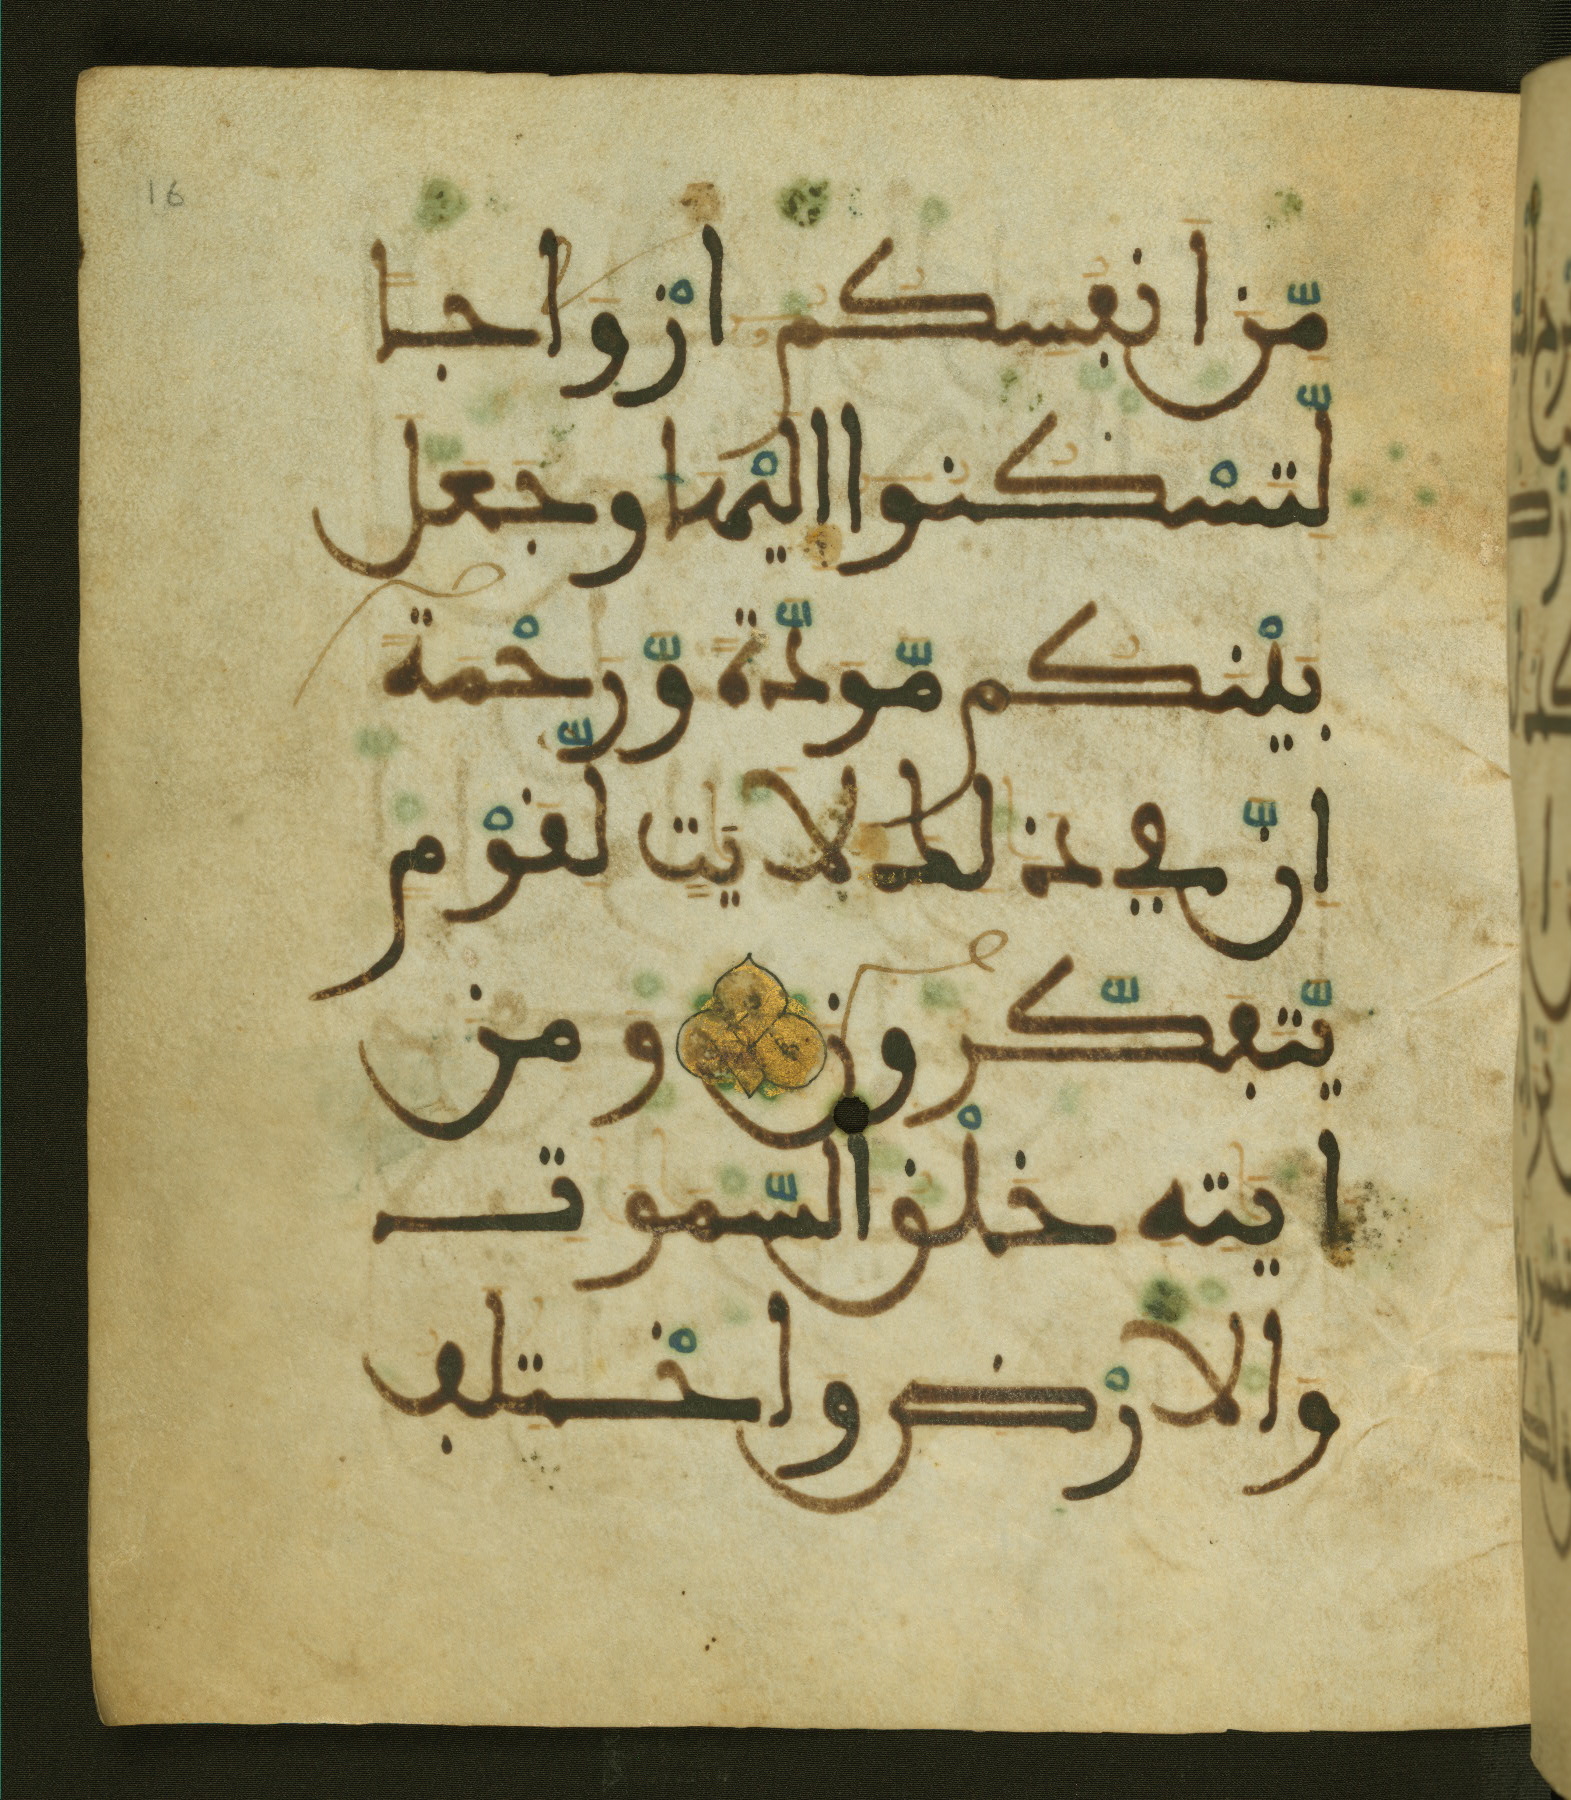 16
مّن انفسكم ازواجا
لّتسكنوا اليها وجعل
بينكم مّودّة وّرحمة
انّ في ذلك لايت لّقوم
يّتفكّرون ومن
ايته خلق السّموت
والارض واختلف